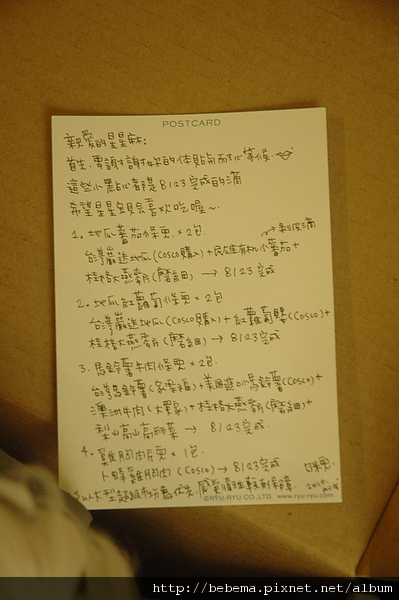 POSTCARD
親愛的星星麻:
首先,要謝謝妳的体貼與耐心等候
這些小點心都是8123完成的滴
希望星星会喜欢吃喔~
1. 地瓜蕃茄條 × 2包
台灣 地瓜(COSCO購入)+民雄有机小蕃茄+
桂格大燕麥(磨細) → 8123完成
2. 地瓜紅蘿蔔條 × 2包
台灣 地瓜(COSCO購入)+紅蘿蔔(COSCO)+
桂格大燕麥(磨細) → 8123完成
3. 馬鈴薯牛肉條 × 2包
台灣馬鈴薯(家樂福)+美國進口馬鈴薯(COSCO)+
澳洲牛肉(大買家)+桂格大燕麥(磨細)+
梨山高山高麗菜 → 8123完成
4. 雞胸肉 × 1包
卜蜂雞胸肉(COSCO) → 8123完成
大型超市 為優先,感覺衛生較有保障
2010.
©RYU-RYU CO.,LTD. www.ryu-ryu.com
http://bebema.pixnet.net/album